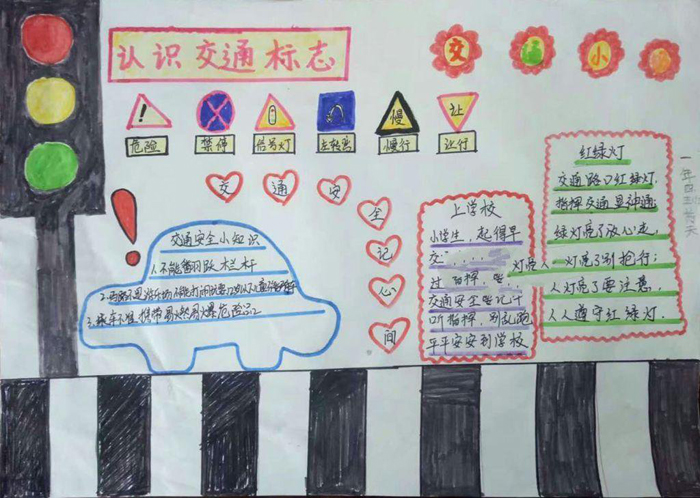 认识交通标志
交通小
危险
禁停
信号灯
左转弯
慢行
让行
慢
让
交通安全记心间
交通安全小知识
1、不能翻阅跨栏杆
3、乘车不准携带易燃易爆危险品
上学校
小学生,起得早
交通安全要记牢
听指挥,别乱跑
平平安安到学校
红绿灯
交通路口红绿灯.
指挥交通显神通
绿灯亮了放心走,
灯亮了别抢行;
灯亮了要注意,
人人遵守红绿灯.